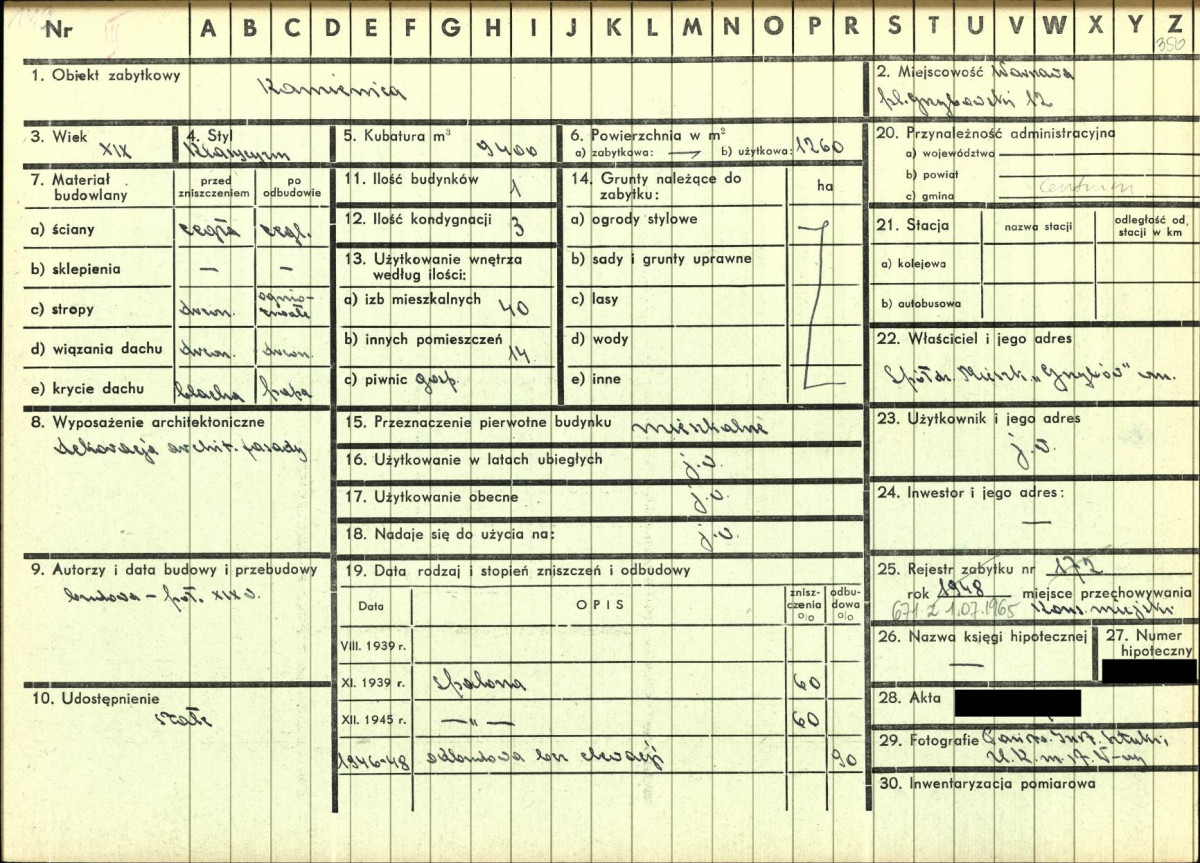 Nr A B C D E F G H I J K L M N O P R S T U V W X Y Z
350
1. Obiekt zabytkowy Kamienica
2. Miejscowość Warszawa
pl. Grzybowski 12
3. Wiek XIX
4. Styl Klasycyzm
5. Kubatura m³ 9400
6. Powierzchnia w m²
a) zabytkowa: — b) użytkowa: 1260
20. Przynależność administracyjna
a) województwo
b) powiat
c) gmina Centrum
7. Materiał budowlany
przed zniszczeniem
po odbudowie
a) ściany cegła cegł.
b) sklepienia — —
c) stropy drewn. ognio-
trwałe
d) wiązania dachu drewn. drewn.
e) krycie dachu blacha papa
11. Ilość budynków 1
12. Ilość kondygnacji 3
13. Użytkowanie wnętrza
według ilości:
a) izb mieszkalnych 40
b) innych pomieszczeń 14
c) piwnic gosp.
14. Grunty należące do
zabytku: ha
a) ogrody stylowe
b) sady i grunty uprawne
c) lasy
d) wody
e) inne
21. Stacja nazwa stacji odległość od
stacji w km
a) kolejowa
b) autobusowa
22. Właściciel i jego adres
Spółdz. Mieszk. „Grzybów"
8. Wyposażenie architektoniczne
dekoracja archit. fasady
15. Przeznaczenie pierwotne budynku mieszkalne
16. Użytkowanie w latach ubiegłych j.w.
17. Użytkowanie obecne j.w.
18. Nadaje się do użycia na: j.w.
23. Użytkownik i jego adres
j.w.
24. Inwestor i jego adres:
—
9. Autorzy i data budowy i przebudowy
budowa – poł. XIX w.
19. Data rodzaj i stopień zniszczeń i odbudowy
Data OPIS znisz-
czenia
o|o odbu-
dowa
o|o
VIII. 1939 r.
XI. 1939 r. Spalona 60
XII. 1945 r. — „ — 60
1946-48 odbudowa bez elewacji 90
25. Rejestr zabytku nr 172
rok 1948 miejsce przechowywania
671 z 1.07.1965 Kons. miejski
26. Nazwa księgi hipotecznej
—
27. Numer
hipoteczny
10. Udostępnienie
stałe
28. Akta
29. Fotografie Państw. Inst. Sztuki,
30. Inwentaryzacja pomiarowa